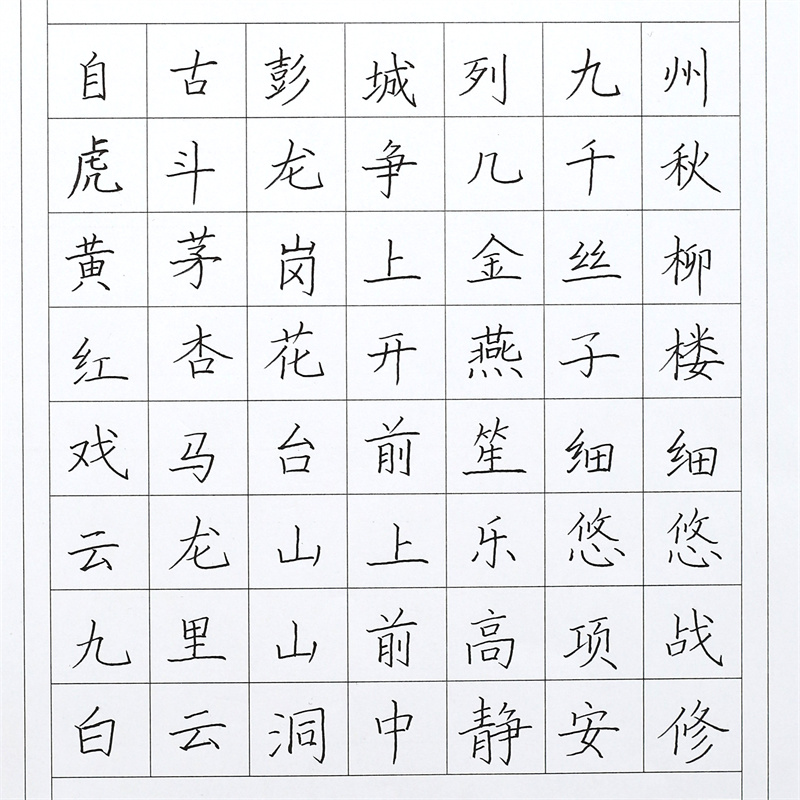 自古彭城列九州
虎斗龙争几千秋
黄茅岗上金丝柳
红杏花开燕子楼
戏马台前笙细细
云龙山上乐悠悠
九里山前高项战
白云洞中静安修